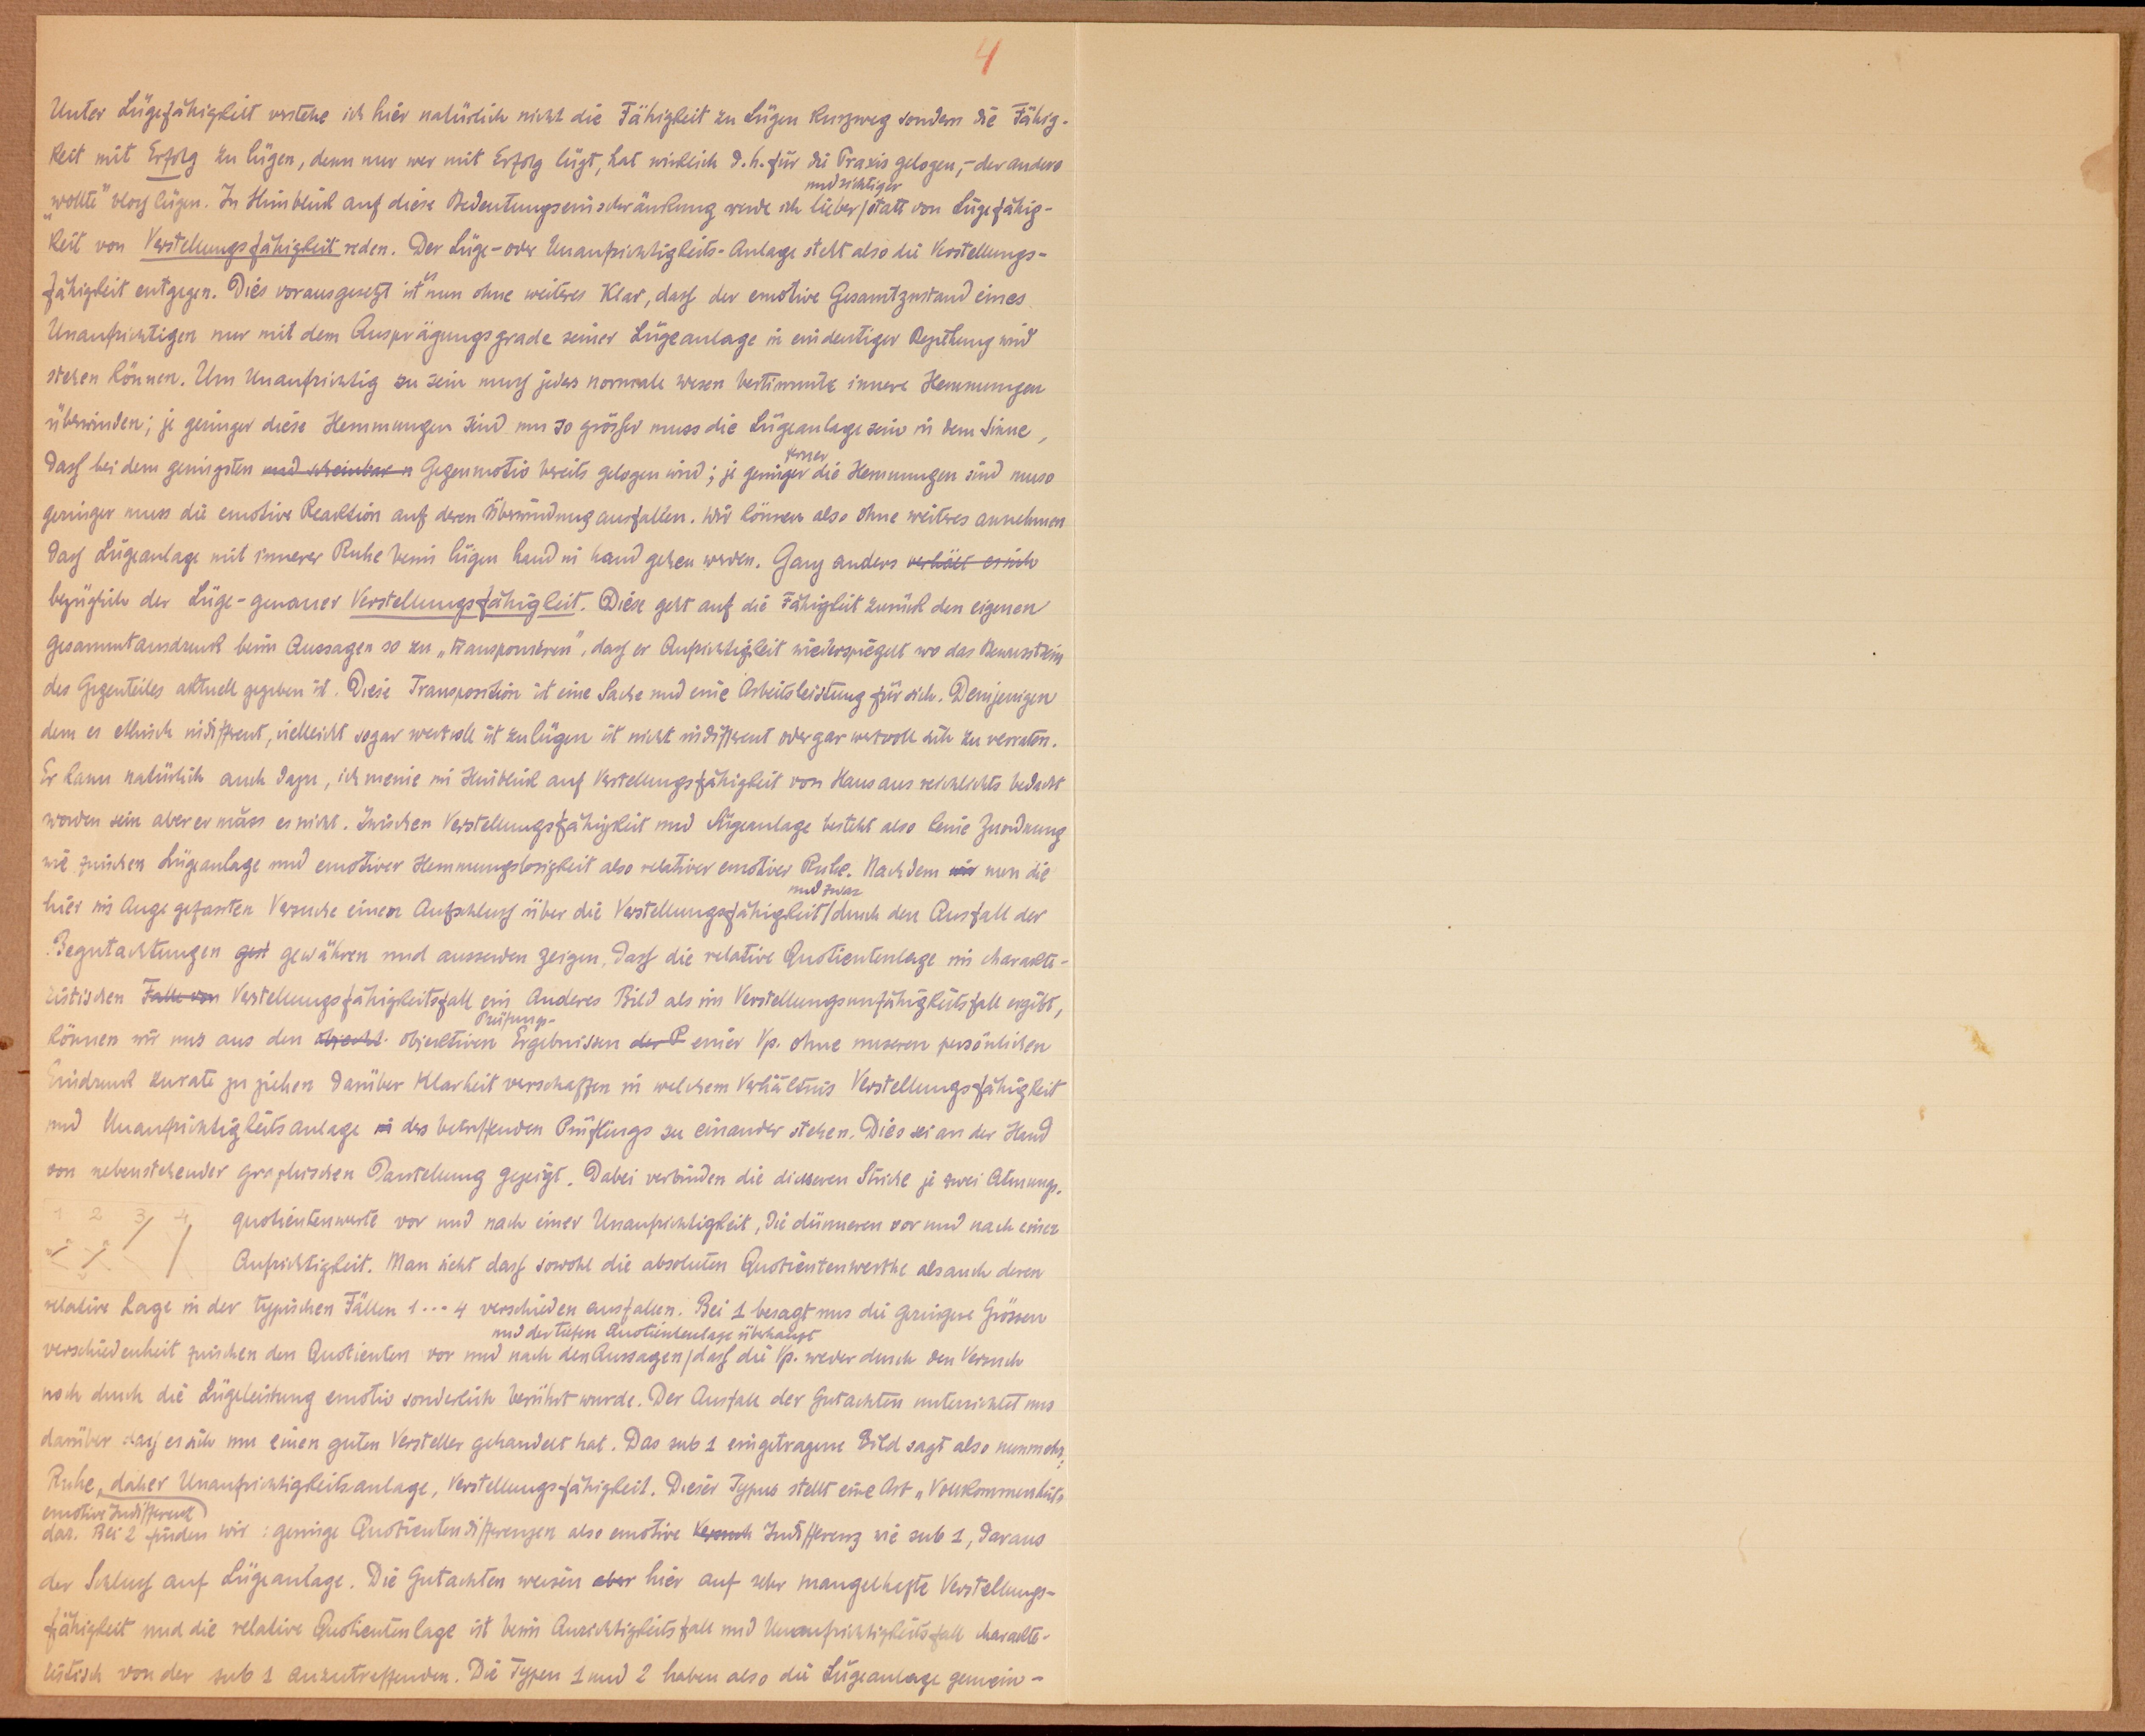 4
Unter Lügefähigkeit verstehe ich hier natürlich nicht die Fähigkeit zu Lügen kurzweg sondern die Fähig-
keit mit Erfolg zu lügen, denn nur wer mit Erfolg lügt, hat wirklich d.h. für die Praxis gelogen, - der andere
und richtiger
"wollte" blosz lügen. In Hinblick auf diese Bedeutungseinschränkung werde ich lieber/statt von Lügefähig-
keit von Verstellungsfähigkeit reden. Der Lüge- oder Unaufrichtigkeits-Anlage steht also die Verstellungs-
fähigkeit entgegen. Dies vorausgesetzt ist es nun ohne weiteres klar, dasz der emotive Gesamtzustand eines
Unaufrichtigen nur mit dem Ausprägungsgrade seiner Lügeanlage in eindeutiger Beziehung wird
stehen können. Um unaufrichtig zu sein musz jedes normale wesen bestimmte innere Hemmungen
überwinden; je geringer diese Hemmungen sind um so gröszer muss die Lügeanlage sein in dem Sinne,
ferner
dasz bei dem geringsten und scheinbar n Gegenmotiv bereits gelogen wird; je geringer die Hemmungen sind umso
geringer muss die emotive Reaktion auf deren Überwindung ausfallen. Wir können also ohne weiteres annehmen
dasz Lügeanlage mit innerer Ruhe beim lügen hand in hand gehen werden. Ganz anders verhält es sich
bezüglich der Lüge- genauer Verstellungsfähigkeit. Diese geht auf die Fähigkeit zurück den eigenen
gesammtausdruck beim Aussagen so zu „transponieren", dasz er Aufrichtigkeit wiederspiegelt wo das Bewusstsein
des Gegenteiles aktuell gegeben ist. Diese Transposition ist eine Sache und eine Arbeitsleistung für sich. Demjenigen
dem es ethisch indifferent, vielleicht sogar wertvoll ist zu lügen ist nicht indifferent oder gar wertvoll sich zu verraten.
Er kann natürlich auch dazu, ich meine im Hinblick auf Verstellungsfähigkeit von Haus aus reichlichts bedacht
worden sein aber er müss es nicht. Zwischen Verstellungsfähigkeit und Lügeanlage besteht also keine Zuordnung
wie zwischen Lügeanlage und emotiver Hemmungslosigkeit also relativer emotiver Ruhe. Nachdem wir nun die
und zwar
hier ins Auge gefassten Versuche einen Aufschlusz über die Verstellungsfähigkeit/durch den Ausfall der
Begutachtungen gest gewähren und ausserdem zeigen, dasz die relative Quotientenlage im charakte-
ristischen Falle von Verstellungsfähigkeitsfall ein Anderes Bild als im Verstellungsunfähigkeitsfall ergibt,
Prüfungs-
können wir uns aus den objeckt. objektiven Ergebnissen der P einer Vp. ohne unseren persönlichen
Eindruck zurate zu ziehen darüber Klarheit verschaffen in welchem Verhältnis Verstellungsfähigkeit
und Unaufrichtigkeitsanlage des betreffenden Prüflings zu einander stehen. Dies sei an der Hand
von nebenstehender graphischen Darstellung gezeigt. Dabei verbinden die dickeren Striche je zwei Atmungs-
1 2 3 4
quotientenwerte vor und nach einer Unaufrichtigkeit, die dünneren vor und nach einer
Aufrichtigkeit. Man sieht dasz sowohl die absoluten Quotientenwerthe als auch deren
relative Lage in der typischen Fällen 1 ... 4 verschieden ausfallen. Bei 1 besagt uns die geringere Grössen
und der tiefen Quotientenlage überhaupt
verschiedenheit zwischen den Quotienten vor und nach den Aussagen/dasz die Vp. weder durch den Versuch
noch durch die Lügeleistung emotiv sonderlich berührt wurde. Der Ausfall der Gutachten unterrichtet uns
darüber dasz es sich um einen guten Versteller gehandelt hat. Das sub 1 eingetragene Bild sagt also nunmehr:
Ruhe, daher Unaufrichtigkeitsanlage, Verstellungsfähigkeit. Dieser Typus stellt eine Art „Vollkommenheit"
emotive Indifferenz
dar. Bei 2 finden wir: geringe Quotientendifferenzen also emotive Versuch Indifferenz wie sub 1, daraus
der Schlusz auf Lügeanlage. Die Gutachten weisen aber hier auf sehr mangelhafte Verstellungs-
fähigkeit und die relative Quotientenlage ist beim Aufrichtigkeitsfall und Unaufrichtigkeitsfall charakte-
ristisch von der sub 1 anzutreffenden. Die Typen 1 und 2 haben also die Lügeanlage gemein-